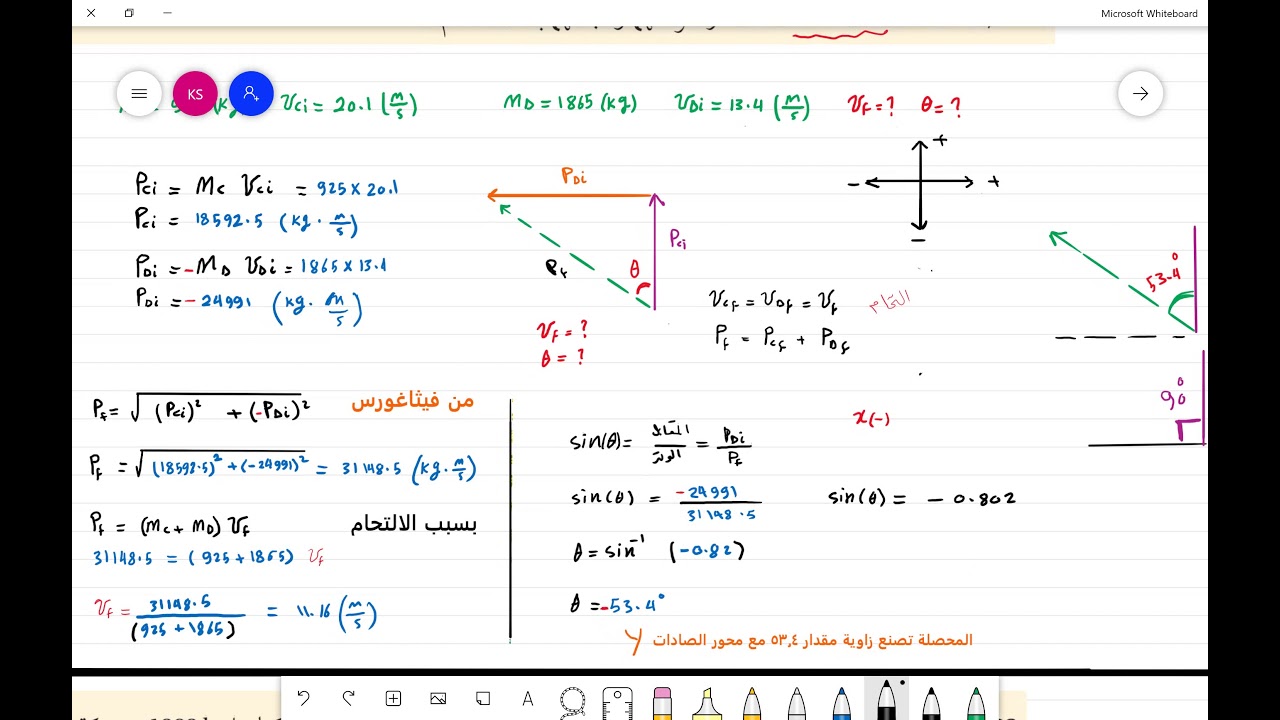 Microsoft Whiteboard
KS
(kg) Vci = 20.1 (m/s) MD = 1865 (kg) VDi = 13.4 (m/s) VF = ? θ = ?
Pci = Mc Vci = 925 x 20.1
Pci = 18592.5 (kg . m/s)
PDi = -MD VDi = 1865 x 13.4
PDi = - 24991 (kg . m/s)
PDi
Pci
PF
θ
VF = ?
θ = ?
+
- +
-
Vcf = VDf = Vf التحام
Pf = Pcf + PDf
53.4°
90°
Pf = √(Pci)² + (-PDi)² من فيثاغورس
Pf = √(18592.5)² + (-24991)² = 31148.5 (kg . m/s)
Pf = (mc + mD) Vf بسبب الالتحام
31148.5 = (925 + 1865) Vf
Vf = 31148.5 / (925 + 1865) = 11.16 (m/s)
x(-)
sin(θ) = المقابل / الوتر = PDi / Pf
sin(θ) = -24991 / 31148.5 sin(θ) = - 0.802
θ = sin⁻¹ (-0.82)
θ = -53.4°
المحصلة تصنع زاوية مقدار ٥٣,٤ مع محور الصادات y